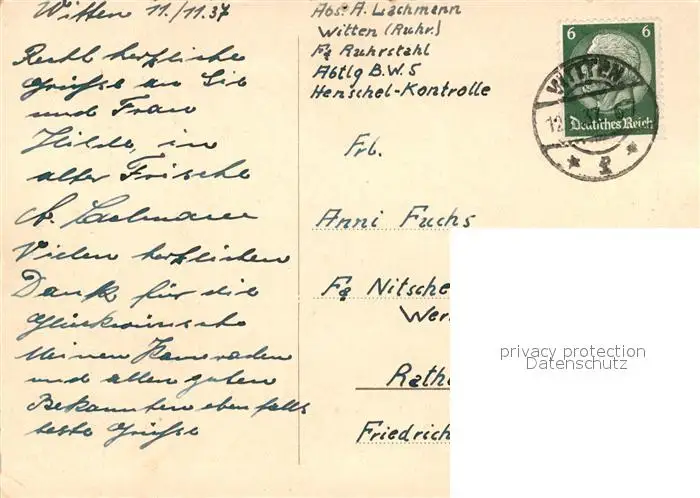 Witten 11./11.37
Recht herzliche
Grüße an Sie
und Frau
Hilde, in
alter Frische
A. Lachmann
Vielen herzlichen
Dank für die
Glückwünsche
Meinen Kameraden
und allen guten
Bekannten ebenfalls
beste Grüße
Abs: A. Lachmann
Witten (Ruhr)
Fa Ruhrstahl
Abtlg B.W.5
Henschel-Kontrolle
6 6
Deutsches Reich
WITTEN
12
Frl.
Anni Fuchs
Fa Nitsche
Wer
Rath
Friedrich
privacy protection
Datenschutz